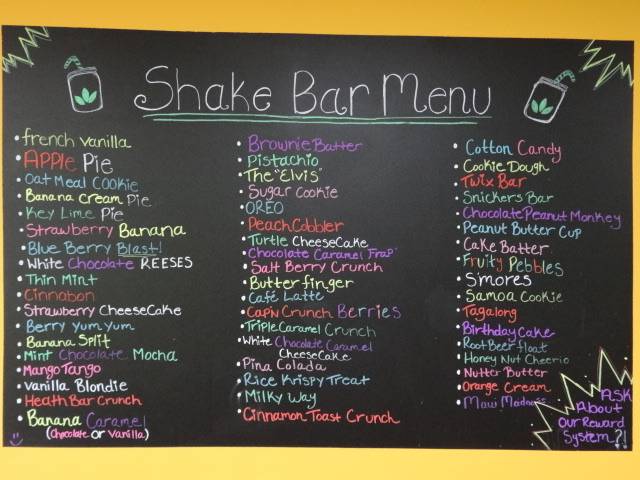 Shake Bar Menu
• french vanilla
• APPle Pie
• Oat Meal COOKie
• Banana Cream Pie
• Key Lime Pie
• Strawberry Banana
• Blue Berry Blast!
• White Chocolate REESES
• Thin Mint
• Cinnabon
• Strawberry CheeseCake
• Berry Yum Yum
• Banana Split
• Mint Chocolate Mocha
• Mango Tango
• Vanilla Blondie
• Heath Bar Crunch
• Banana Caramel
(Chocolate or Vanilla)
• Brownie Batter
• Pistachio
• The "Elvis"
• Sugar Cookie
• OREO
• Peach Cobbler
• Turtle CheeseCake
• Chocolate Caramel Frap
• Salt Berry Crunch
• Butterfinger
• Café Latte
• Cap'n Crunch Berries
• Triple Caramel Crunch
• White Chocolate Caramel
CheeseCake
• Pina Colada
• Rice Krispy Treat
• Milky Way
• Cinnamon Toast Crunch
• Cotton Candy
• Cookie Dough
• Twix Bar
• Snickers Bar
• Chocolate Peanut Monkey
• Peanut Butter Cup
• Cake Batter
• Fruity Pebbles
• S'mores
• Samoa Cookie
• Tagalong
• Birthday Cake
• Root Beer float
• Honey Nut Cheerio
• Nutter Butter
• Orange Cream
• Maui Madness
ASK
About
Our Reward
System?!